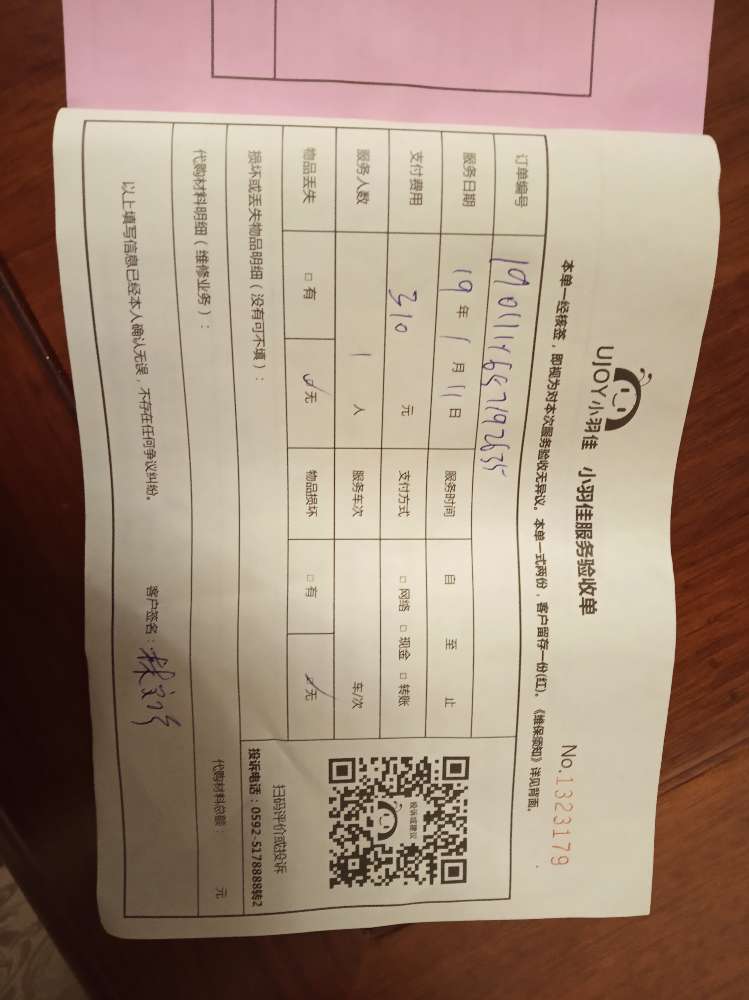 UJOY小羽佳 小羽佳服务验收单
No.1323179
本单一经核签，即视为对本次服务验收无异议。本单一式两份，客户留存一份(红)。《维保须知》详见背面。
订单编号
服务日期 19 年 1 月 11 日 服务时间 自 至 止
支付费用 310 元 支付方式 □ 网络 □ 现金 □ 转账
服务人数 1 人 服务车次 车/次
物品丢失 □ 有 □ 无 物品损坏 □ 有 □ 无
投诉或建议
扫码评价或投诉
投诉电话：0592-5178888转2
损坏或丢失物品明细（没有可不填）：
代购材料明细（维修业务）： 代购材料总额： 元
以上填写信息已经本人确认无误，不存在任何争议纠纷。 客户签名：